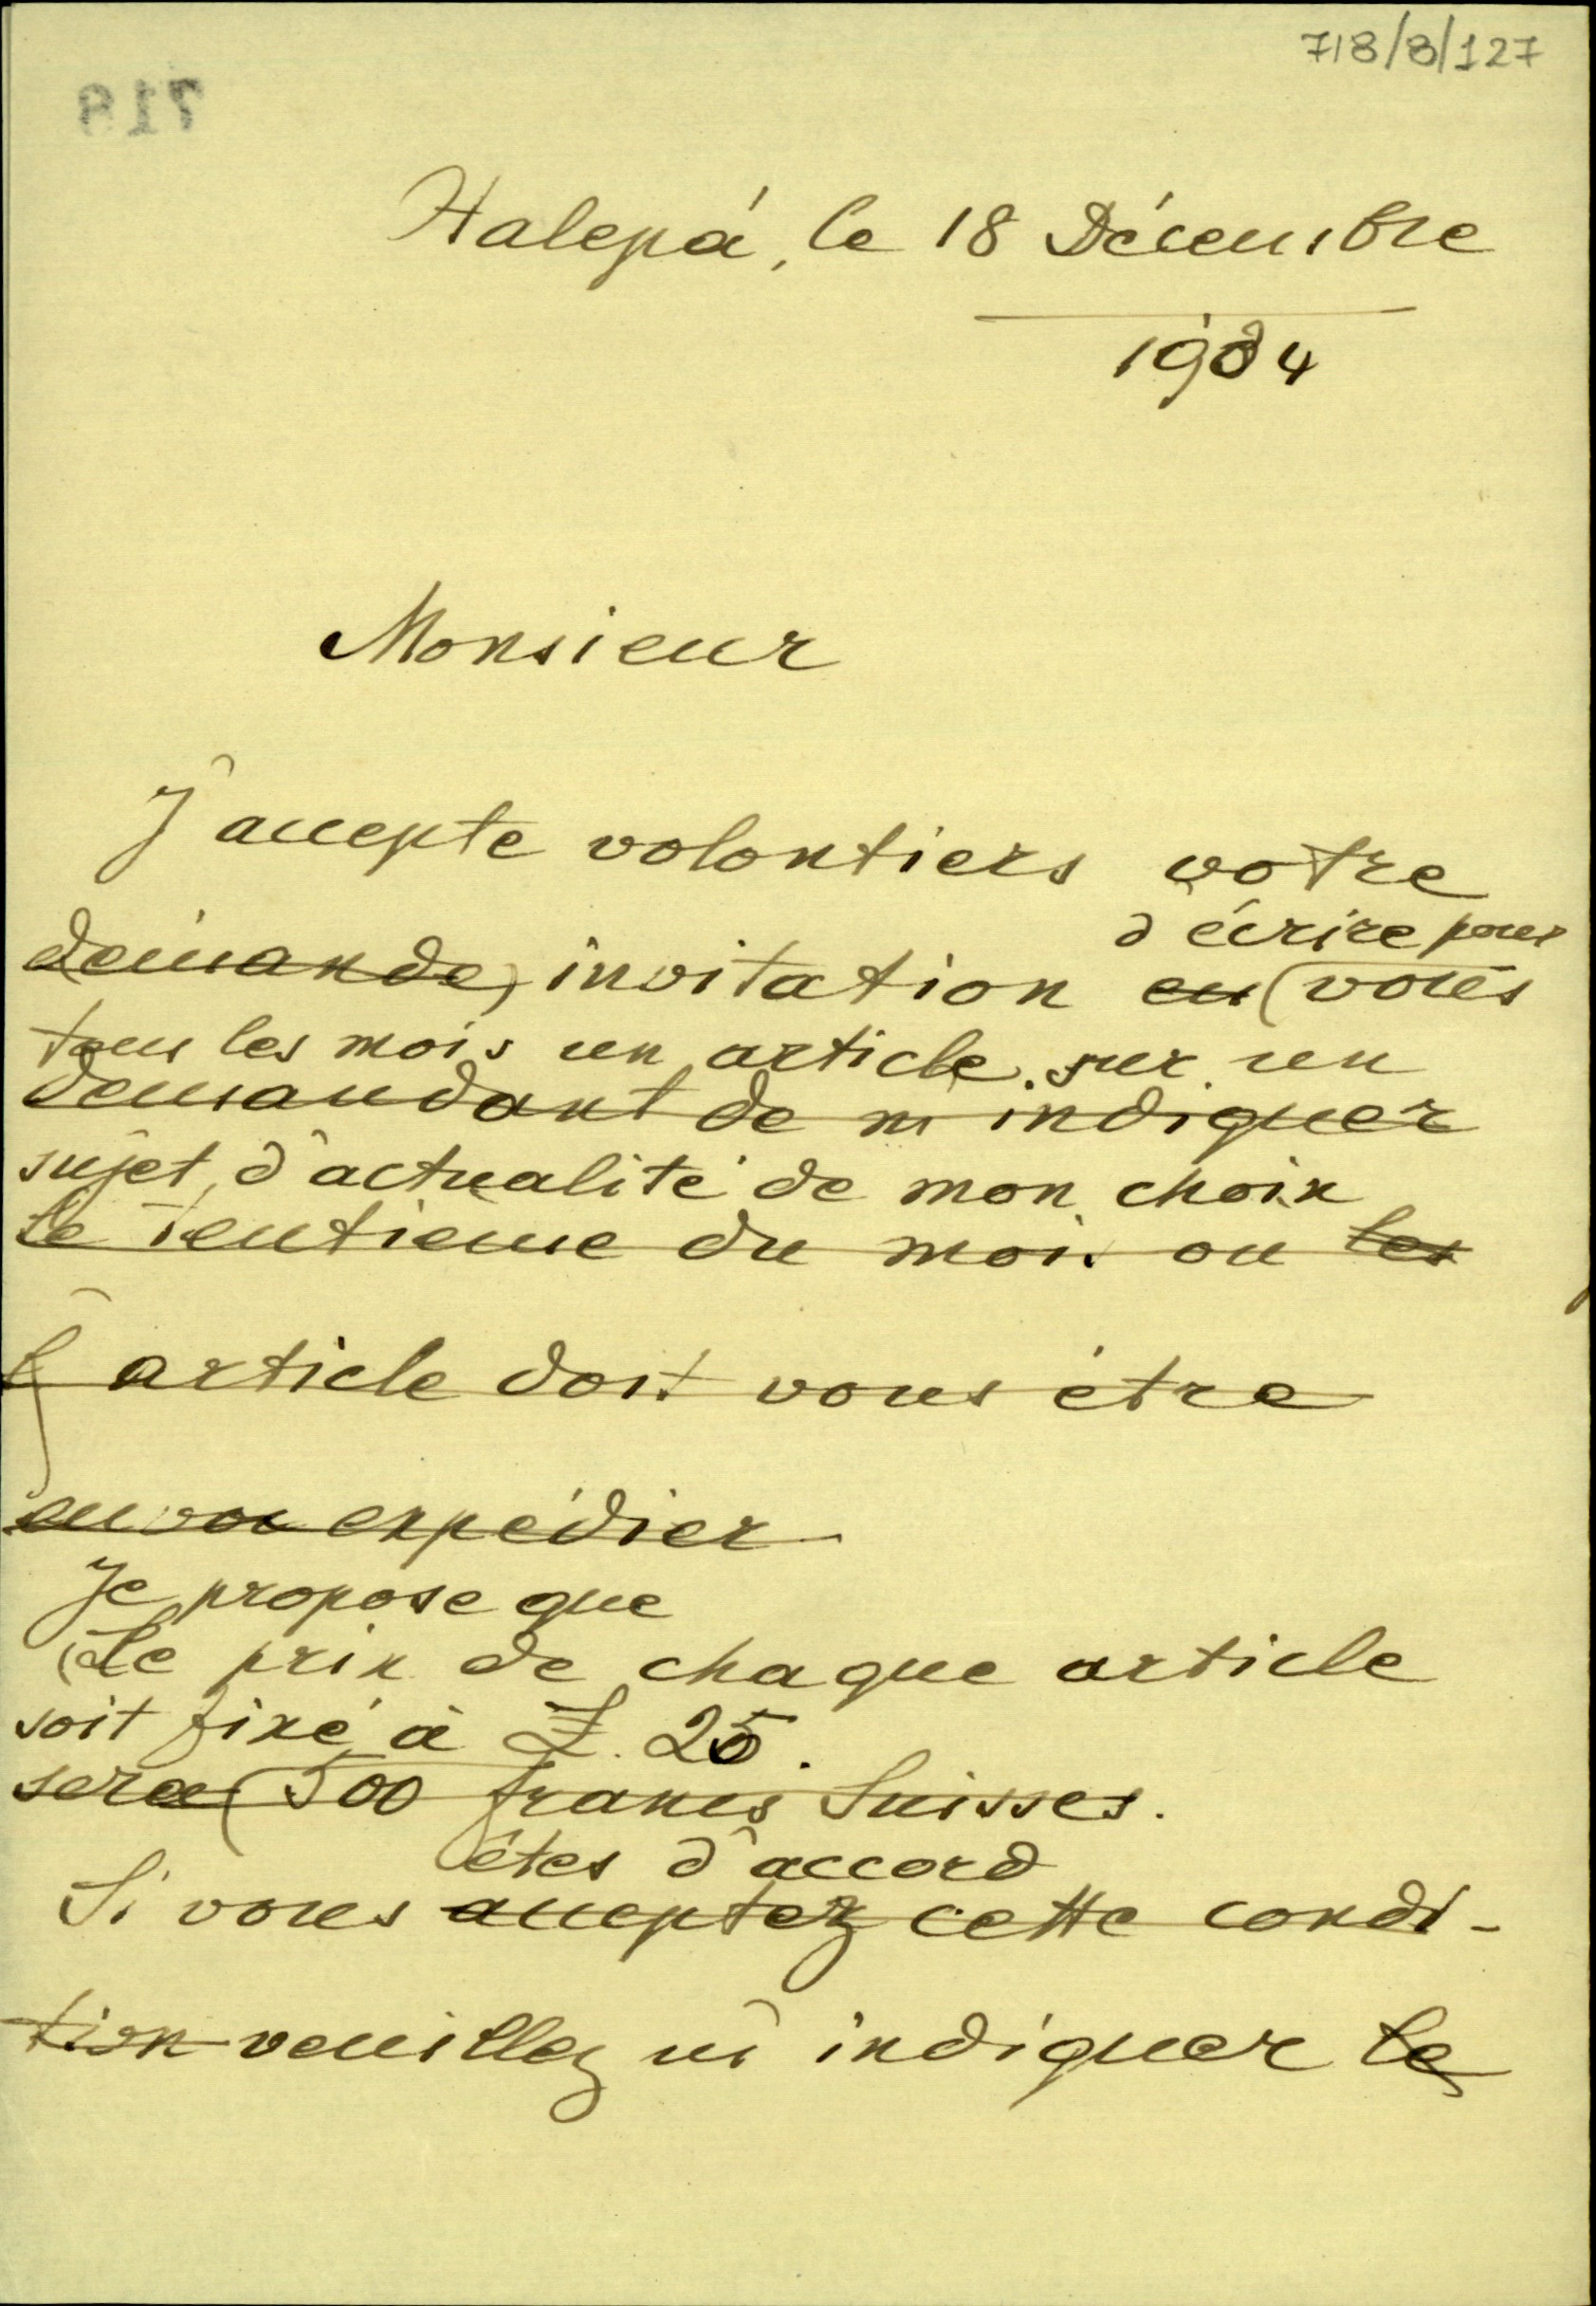 718/8/127
718
Halepá, le 18 Décembre
1934
Monsieur
J'accepte volontiers votre
d'écrire pour
demande, invitation en vous
tous les mois un article sur un
demandant de m'indiquer
sujet d'actualité de mon choix
le du mois ou les
l'article doit vous être
envoi expédier
Je propose que
Le prix de chaque article
soit fixé à £. 25.
sera 500 francs Suisses.
êtes d'accord
Si vous acceptez cette condi-
tion veuillez m'indiquer le